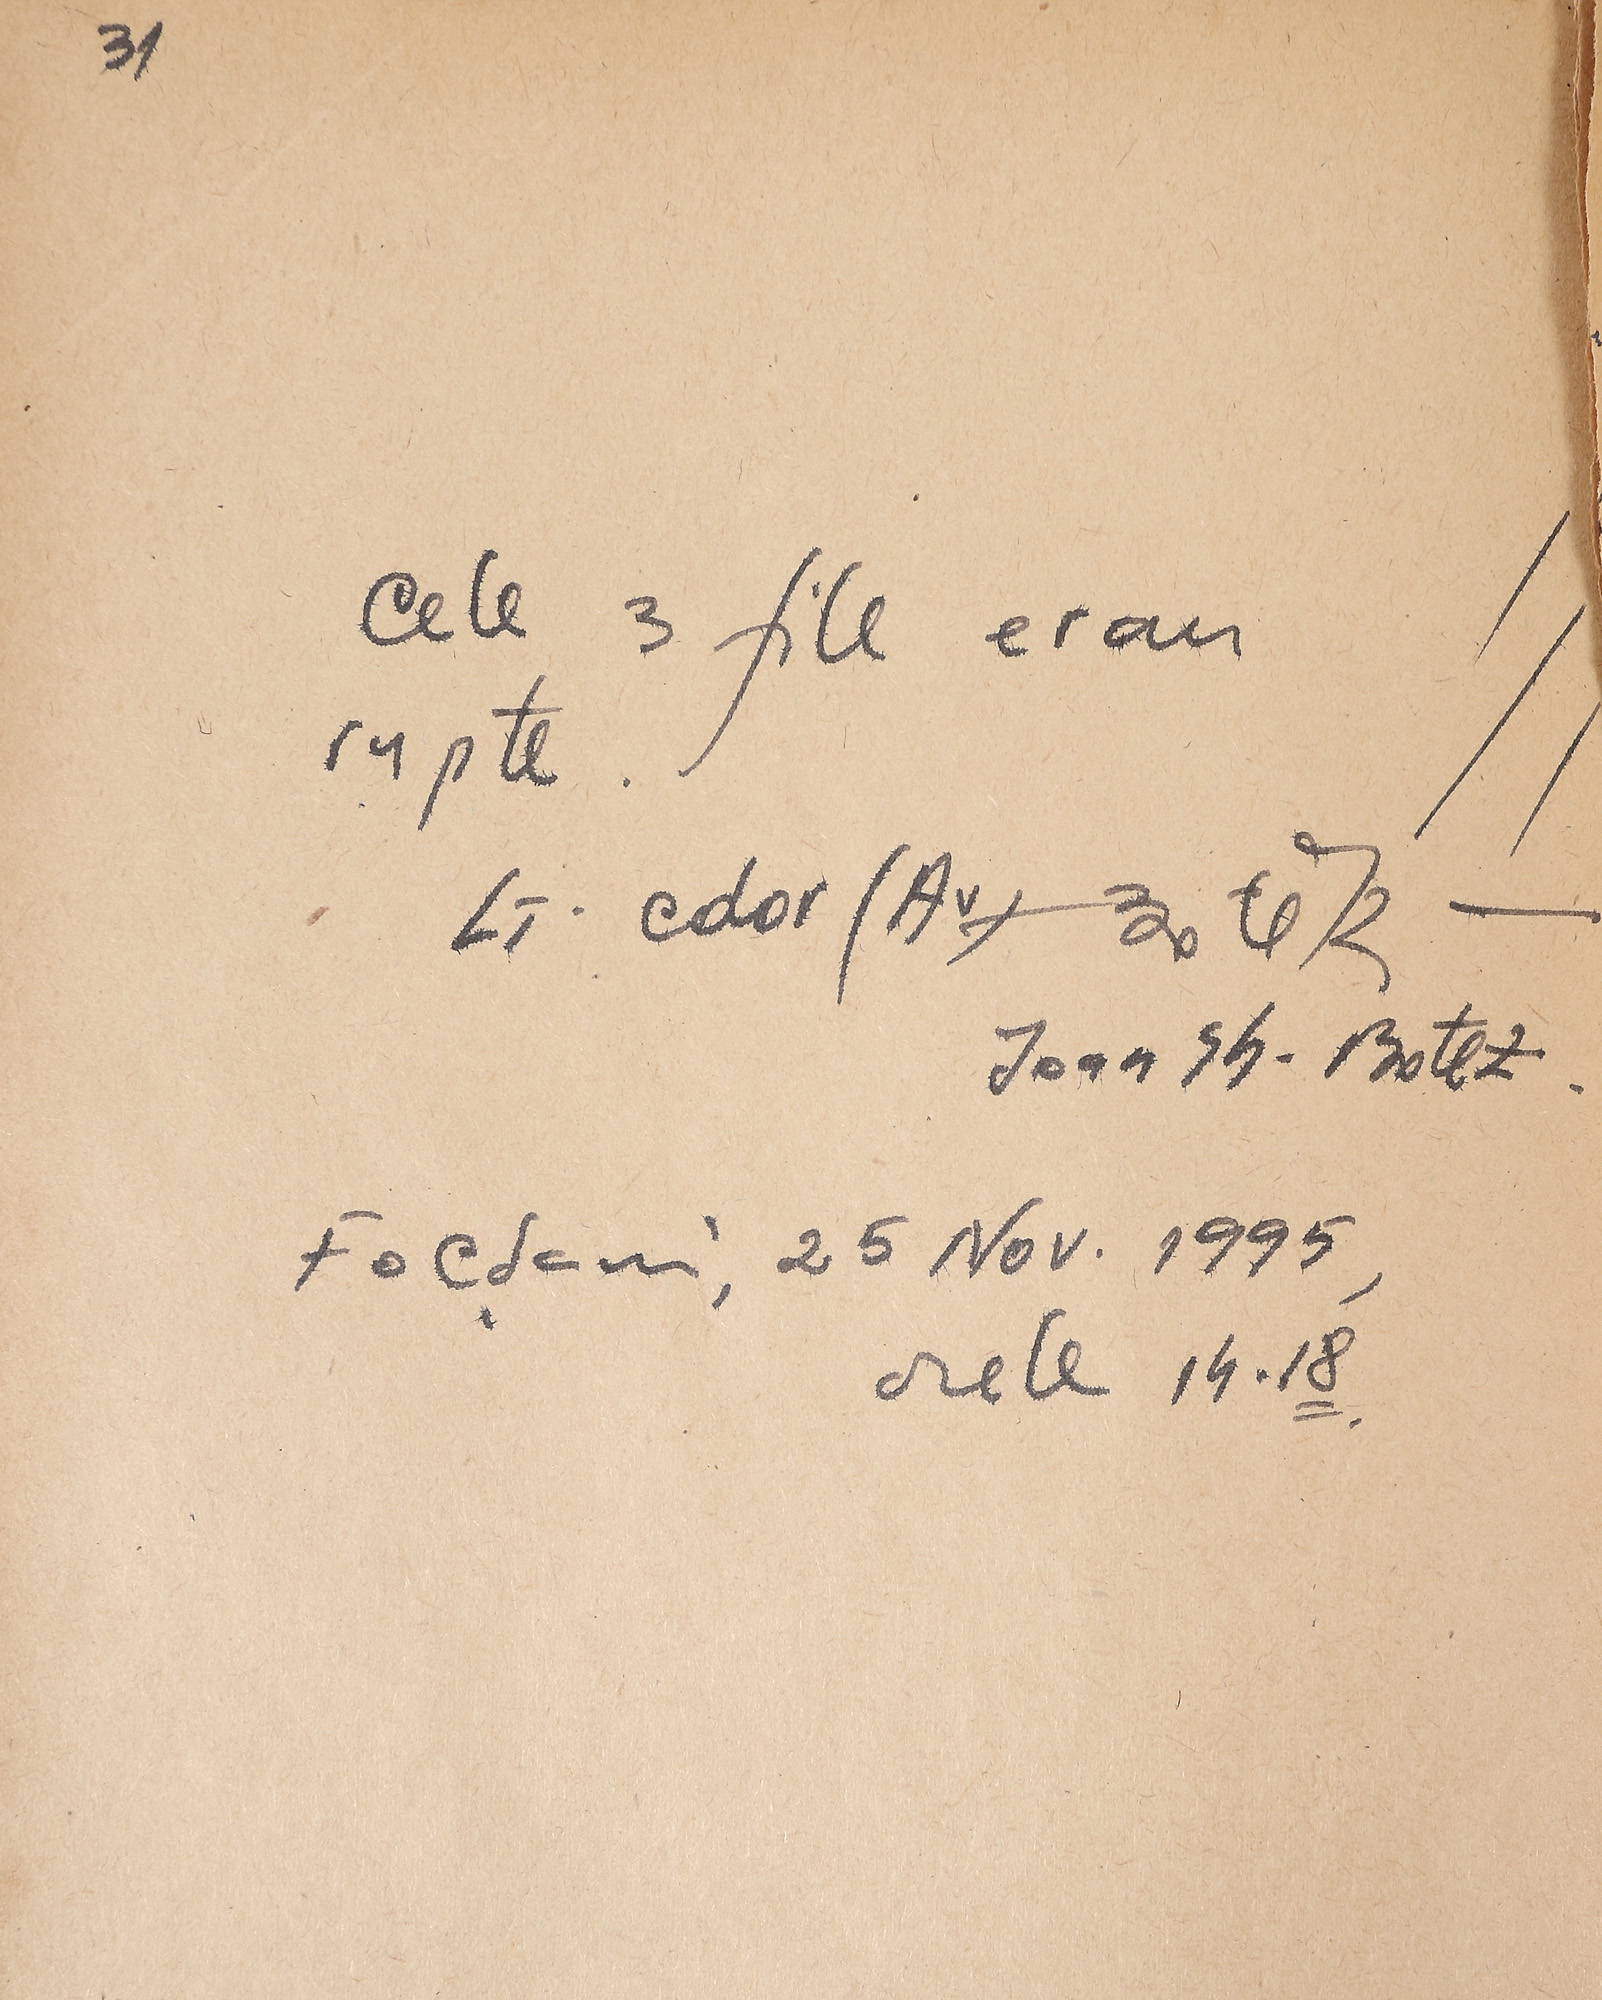 31
Cele 3 file erau
rupte.
Lt. cdor (Av)
Ioan Gh. Botez.
Focșani, 25 Nov. 1995,
orele 14.18.